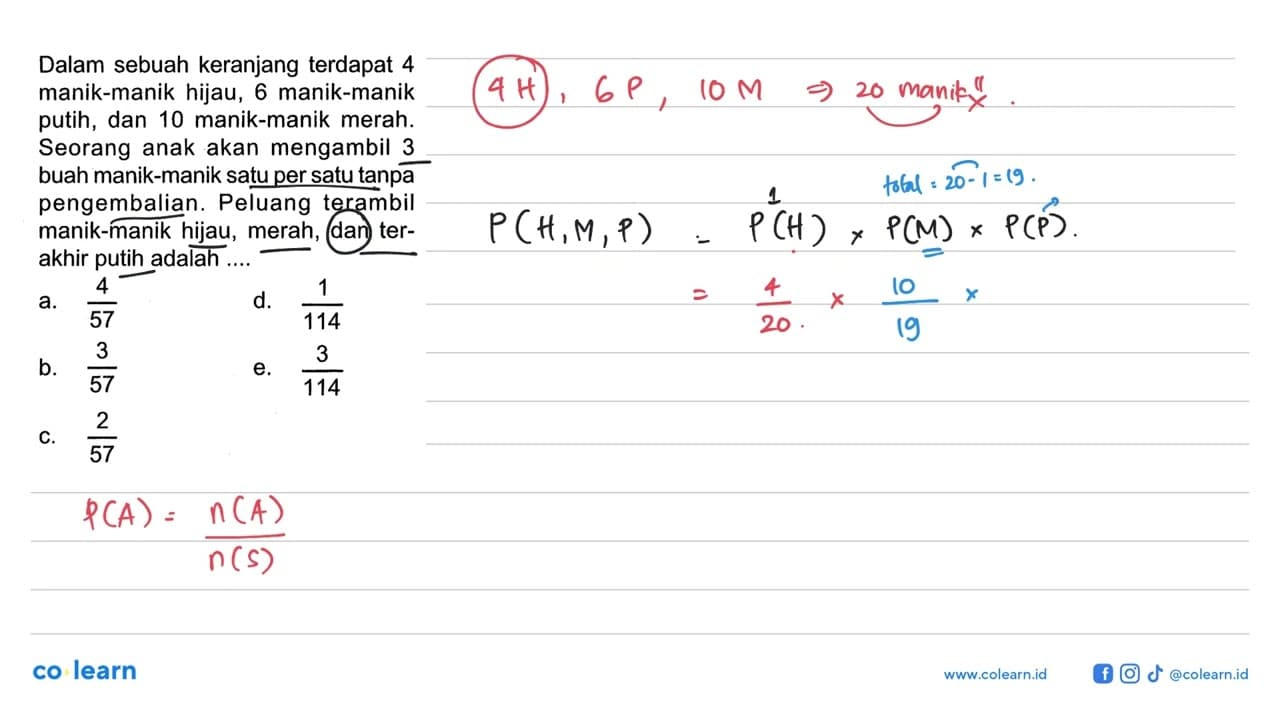 Dalam sebuah keranjang terdapat 4
manik-manik hijau, 6 manik-manik
putih, dan 10 manik-manik merah.
Seorang anak akan mengambil 3
buah manik-manik satu per satu tanpa
pengembalian. Peluang terambil
manik-manik hijau, merah, dan ter-
akhir putih adalah ....
a. 4/57
b. 3/57
c. 2/57
d. 1/114
e. 3/114
P(A) = n(A)/n(S)
4H, 6P, 10M ⇒ 20 manik".
total = 20-1=19.
1
P(H,M,P) = P(H) × P(M) × P(P).
= 4/20. × 10/19 ×
co learn
www.colearn.id
@colearn.id